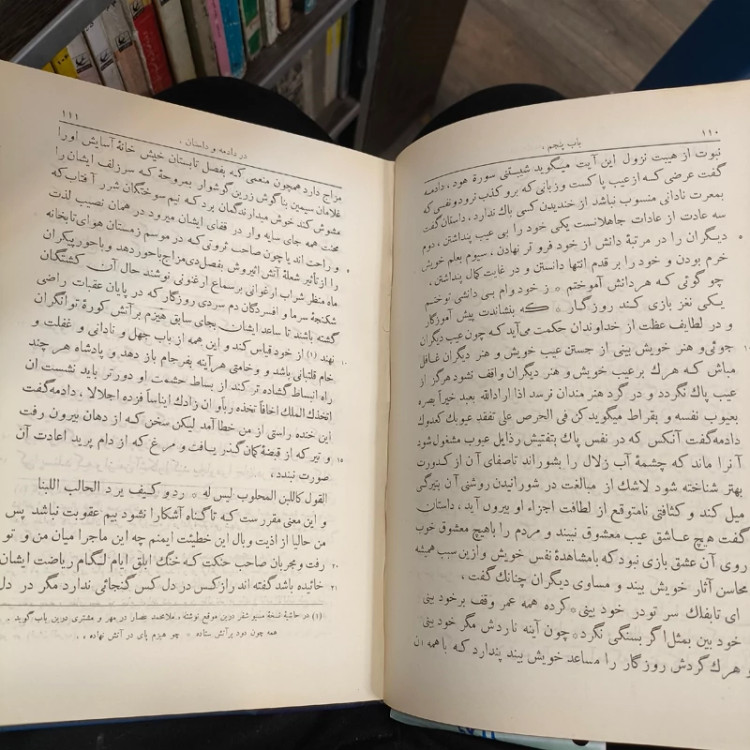 ۱۱۰
باب پنجم .
نبوت از هیبت نزول این آیت میگوید شیبتنی سورة هود ، دادمه
گفت عرضی که از عیب پاکست و زبانی که بر و کذب نرود و نفسی که
بمعرت نادانی منسوب نباشد از خندیدن کسی باك ندارد ، داستان گفت
سه عادت از عادات جاهلانست یکی خود را بی عیب پنداشتن ، دوم
۵
دیگران را در مرتبهٔ دانش از خود فرو تر نهادن ، سیوم بعلم خویش
خرم بودن و خود را بر قدم انتها دانستن و در غایت کمال پنداشتن ،
چو گوئی که هر دانش آموختم * ز خود وام بی دانشی توختم
یکی نغز بازی کند روزگار * که بنشاندت پیش آموزگار
و در لطایف عظت از خداوندان حکمت می‌آید که چون عیب دیگران
۱۰
جوئی و هنر خویش بینی از جستن عیب خویش و هنر دیگران غافل
مباش که هرك بر عیب خویش و هنر دیگران واقف نشود هرگز از
عیب پاك نگردد و در گرد هنر مندان نرسد اذا اراد الله بعبد خیراً بصره
بعیوب نفسه و بقراط میگوید کن فی الحرص علی تفقد عیوبك کعدوك
دادمه گفت آنکس که در نفس پاك بتفتیش رذایل عیوب مشغول شود
آنرا ماند که چشمهٔ آب زلال را بشوراند تا صفای آن از کدورت
بهتر شناخته شود لاشك از مبالغت در شورانیدن روشنی آن بتیرگی
میل کند و کثافتی نامتوقع از لطافت اجزاء او بیرون آید ، داستان
گفت هیچ عاشق عیب معشوق نبیند و مردم را با هیچ معشوق خوب
روی آن عشق بازی نبود که با مشاهدهٔ نفس خویش و ازین سبب همیشه
محاسن آثار خویش بیند و مساوی دیگران چنانك گفت ،
ای تا بفلك سر تو در خود بینی * کرده همه عمر وقف بر خود بینی
خود بین بمثل اگر بسنگی نگرد * چون آینه ناردش مگر خود بینی
و هرك گردش روزگار را مساعد خویش بیند پندارد که با همه
۱۱۱
در دادمه و داستان .
مزاج دارد همچون منعمی که بفصل تابستان خیش خانهٔ آسایش او را
غلامان سیمین بناگوش زرین گوشوار بمروحهٔ که سر زلف ایشان را
مشوش کند خوش میدارند گمان برد که نیم سوختگان شرر آفتاب که
محنت همه جای سایه وار در قفای ایشان میرود در همان نصیب لذت
و راحت اند یا چون صاحب ثروتی که در موسم زمستان هوای تابخانه
۵
را از تأثیر شعلهٔ آتش اثیروش بفصل دی مزاج باحور دهد و با حور پیکران
ماه منظر شراب ارغوانی بر سماع ارغنونی نوشند حال آن کشتگان
شکنجهٔ سرما و افسردگان دم سردی روزگار که در پایان عقبات راضی
گشته باشند تا ساعد ایشان بجای سابق هیزم بر آتش کورهٔ توانگران
نهند (۱) از خود قیاس کند و این همه از باب جهل و نادانی و غفلت و
۱۰
خام قلتبانی باشد و وخامتی هر آینه بفرجام باز دهد و پادشاه هر چند
راه انبساط گشاده تر کند از بساط حشمت او دورتر باید نشست ان
اتخذك الملك اخافاً تخذه رباً و ان زادك ایناساً فزده اجلالا ، دادمه گفت
این خنده راستی از من خطا آمد لیکن سخن که از دهان بیرون رفت
و تیر که از قبضهٔ کمان گذر یافت و مرغ که از دام پرید اعادت آن
۱۵
صورت نبندد ،
القول کاللبن المحلوب لیس له * رد و کیف یرد الحالب اللبنا
و این معنی مقررست که تا گناه آشکارا نشود بیم عقوبت نباشد پس
من حالیا از اذیت وبال این خطیئت ایمنم چه این ماجرا میان من و تو
رفت و مجربان صاحب حنکت که خنگ ابلق ایام لگام ریاضت ایشان
۲۰
خائیده باشد گفته اند راز کس در دل کس گنجائی ندارد مگر در دل
۲۱
(۱) در حاشیهٔ نسخهٔ مسیو شفر درین موقع نوشته ، غلامحمد عصار در مهر و مشتری درین باب گوید .
همه چون دود بر آتش ستاده * چو هیزم پای در آتش نهاده .